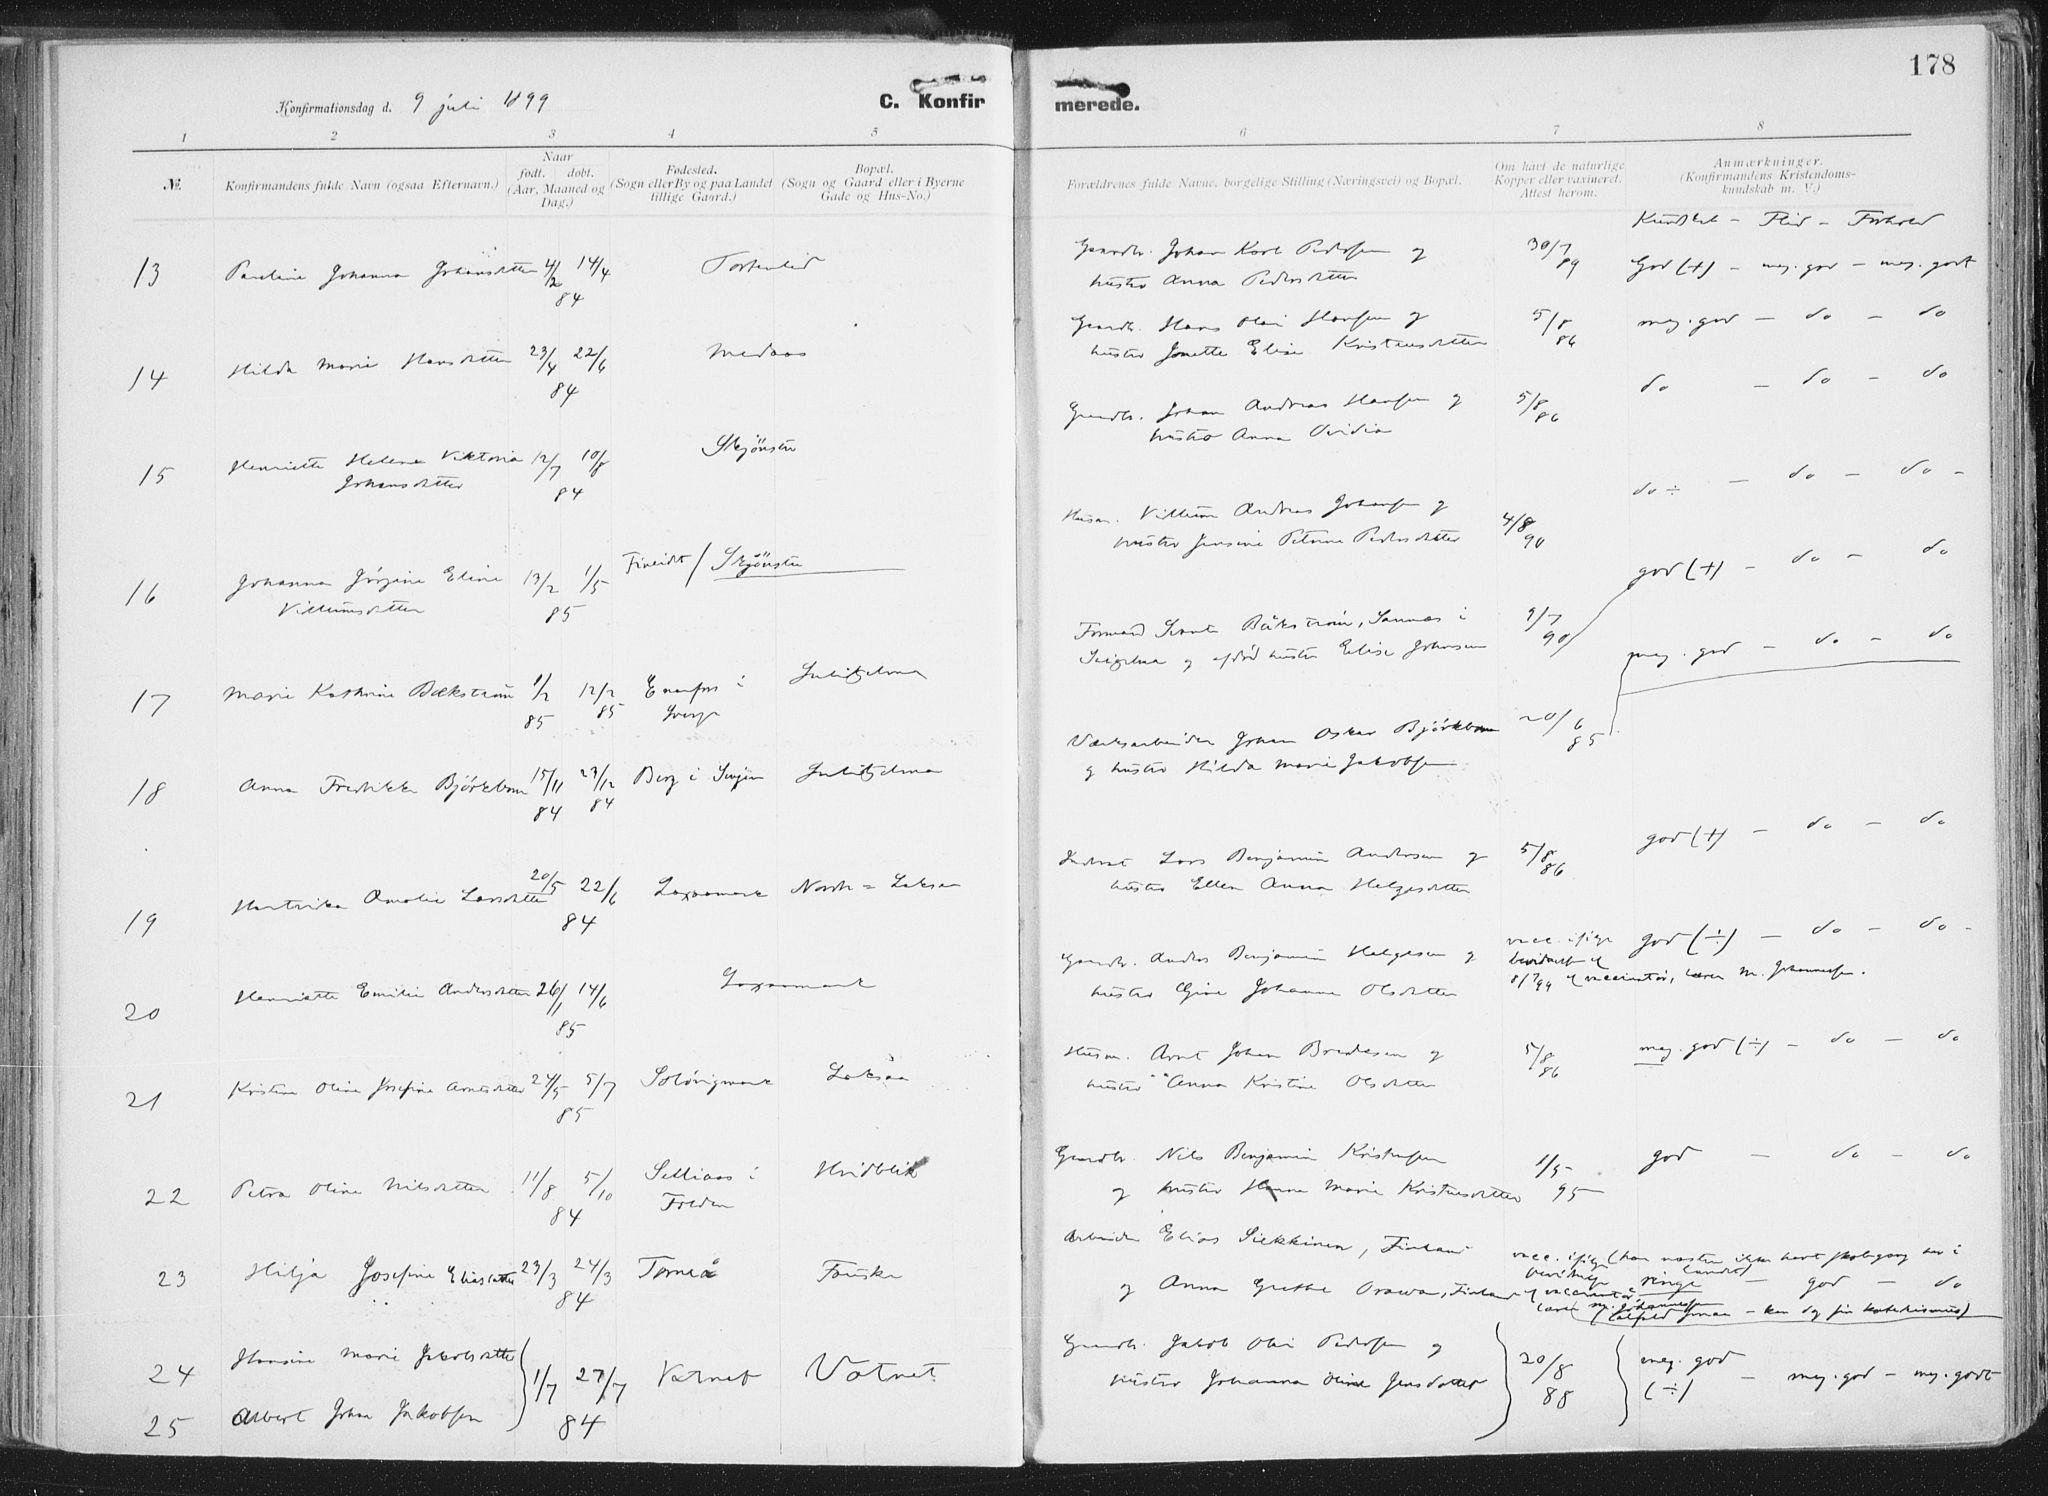 178
Konfirmationsdag d. 9 juli 1899
C. Konfirmerede.
1 2 3 4 5 6 7 8
№.
Konfirmandens fulde Navn (ogsaa Efternavn.)
Naar
født. døbt.
(Aar, Maaned og
Dag.)
Fødested.
(Sogn eller By og paa Landet
tillige Gaard.)
Bopæl.
(Sogn og Gaard eller i Byerne
Gade og Hus-No.)
Forældrenes fulde Navne, borgelige Stilling (Næringsvei) og Bopæl.
Om havt de naturlige
Kopper eller vaxineret.
Attest herom.
Anmærkninger.
(Konfirmandens Kristendoms-
kundskab m. V.)
Kundskab – Flid – Forhold
13 Pauline Johanna Johansdtter 4/2 14/4 84
Gaardbr. Johan Karl Pedersen og
hustro Anna Pedersdtter
30/7 89
God (+) – meg. god – meg. godt
14 Hilda Marie Hansdtter 23/4 22/6 84 Medaas
Gaardbr. Hans Olai Hansen og
hustro Jonette Elise Kristensdtter
5/8 86
meg. god – do – do
15 Henriette Helene Viktoria
Johansdtter
12/7 10/8 84 Skjönstu
Gaardbr. Johan Andreas Hansen og
hustro Anna Ovidia
5/8 86
do – do – do
16 Johanna Jörgine Eline
Villumsdtter
13/2 1/5 85 Fineidt / Skjönstu
Husm. Villum Andreas Johansen og
hustro Jensine Petrine Pedersdtter
4/8 90
do ÷ – do – do –
17 Marie Kathrine Bækström 1/2 85 12/2 85
i Sverge Sulitjelma
Formand Bäkström, Sannes i
og hustro Elise Johansen
9/7 90
god (+) – do – do
18 Anna Fredrikke Björkbom 15/11 84 23/12 84 Berg i Senjen Sulitjelma
Værksarbeider Johan Oskar Björkbom
og hustro Hilda Marie Jakobsen
20/6 85
meg. god – do – do
19 Hartvika Amalie Larsdtter 20/5 22/6 84 Laxaamark Nordr = Laksaa
Lars Benjamin Andersen og
hustro Ellen Anna Helgesdtter
5/8 86
god (+) – do – do
20 Henriette Emilie Andersdtter 26/1 14/6 85 Laxaamark
Gaardbr. Anders Benjamin Helgesen og
hustro Gine Johanne Olsdtter
vacc. ifölge
8/7 99 af vaccinatör, lærer M. Johannessen.
god (÷) – do – do –
21 Kristine Oline Josefine Arntsdtter 24/5 5/7 85 Solövigmark Laksaa
Husm. Arnt Johan Bredesen og
hustro Anna Kristine Olsdtter
5/8 86
meg. god (÷) – do – do
22 Petra Oline Nilsdtter 11/8 5/10 84 Selliaas i
Folden
Hvidblik
Gaardbr. Nils Benjamin Kristensen
og hustro Hanna Marie Kristensdtter
1/5 95
god – do – do
23 Hilja Josefine Eliasdatter 23/3 24/3 84 Torneå Fauske
Arbeider Elias Siekkinen, Finland
og Anna Grethe Orawa, Finland
vacc. ifölge
af vaccinatör
lærer M. Johannessen
(har næsten ikke havt skolegang her i
landet)
ringe – god – do
24 Hansine Marie Jakobsdtter
25 Albert Johan Jakobsen
1/7 27/7 84 Vatnet Vatnet
Gaardbr. Jakob Olai Pedersen og
hustro Johanna Oline Jensdatter
20/8 88
meg. god
(÷) – meg. god – meg. godt